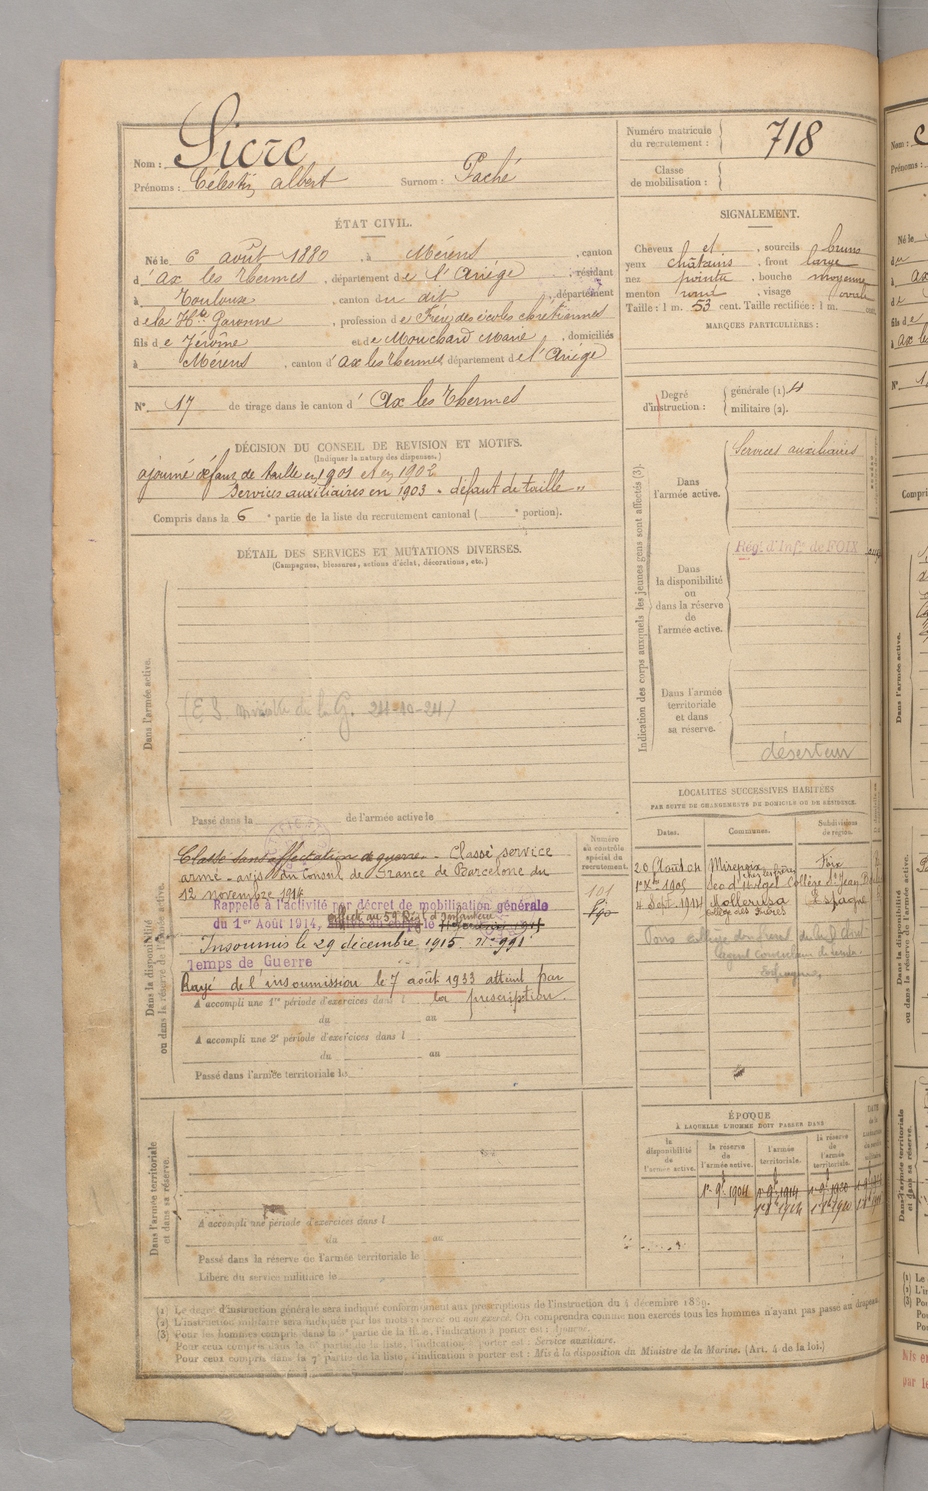 Nom : Sicre
Prénoms : Célestin Albert Surnom : Paché
Numéro matricule du recrutement : 718
Classe de mobilisation :
ÉTAT CIVIL.
Né le 6 août 1880, à Mérens, canton
d'Ax les Thermes, département de l'Ariège, résidant
à Toulouse, canton du dit, département
de la Hte Garonne, profession de Frère des écoles chrétiennes
fils de Jérôme et de Mouchard Marie, domiciliés
à Mérens, canton d'Ax les Thermes département de l'Ariège
N° 17 de tirage dans le canton d'Ax les Thermes
SIGNALEMENT.
Cheveux et, sourcils bruns
yeux châtains, front large
nez pointu, bouche moyenne
menton rond, visage ovale
Taille : 1 m. 53 cent. Taille rectifiée : 1 m. cent.
MARQUES PARTICULIÈRES :
Degré d'instruction : générale (1).
militaire (2).
DÉCISION DU CONSEIL DE REVISION ET MOTIFS.
(Indiquer la nature des dispenses.)
ajourné défaut de taille en 1901 et en 1902
Services auxiliaires en 1903 « défaut de taille »
Compris dans la 6e partie de la liste du recrutement cantonal ( e portion).
DÉTAIL DES SERVICES ET MUTATIONS DIVERSES.
(Campagnes, blessures, actions d'éclat, décorations, etc.)
Dans l'armée active.
24-10-24)
Passé dans la de l'armée active le
Indication des corps auxquels les jeunes gens sont affectés (3).
Dans l'armée active.
Services auxiliaires
Dans la disponibilité ou dans la réserve de l'armée active.
Régt d'Infie de FOIX
Dans l'armée territoriale et dans sa réserve.
déserteur
Dans la disponibilité ou dans la réserve de l'armée active.
Numéro au contrôle spécial du recrutement.
Classé sans affectation de guerre. - Classé service
armé - avis du Conseil de France de Barcelone du
12 novembre 1914
Rappelé à l'activité par décret de mobilisation générale
du 1er Août 1914,
affecté au 59e Régt d'Infanterie
Insoumis le 29 décembre 1915 n° 991
Temps de Guerre
Rayé de l'insoumission le 7 août 1933 atteint par
la prescription.
A accompli une 1re période d'exercices dans l
du au
A accompli une 2e période d'exercices dans l
du au
Passé dans l'armée territoriale le
LOCALITÉS SUCCESSIVES HABITÉES
PAR SUITE DE CHANGEMENTS DE DOMICILE OU DE RÉSIDENCE.
Dates. Communes. Subdivisions de région.
20 Août 04 Mirepoix Foix
1905 Seo d'Urgel Collège St Jean
4 Sept 1914 Mollerusa Espagne
collège des Frères
Espagne.
ÉPOQUE
À LAQUELLE L'HOMME DOIT PASSER DANS
la disponibilité de l'armée active.
la réserve de l'armée active.
l'armée territoriale.
la réserve de l'armée territoriale.
Dans l'armée territoriale et dans sa réserve.
A accompli une période d'exercices dans l
du au
Passé dans la réserve de l'armée territoriale le
Libéré du service militaire le
(1) Le degré d'instruction générale sera indiqué conformément aux prescriptions de l'instruction du 4 décembre 1889.
(2) L'instruction militaire sera indiquée par les mots : exercé ou non exercé. On comprendra comme non exercés tous les hommes n'ayant pas passé au drapeau.
(3) Pour les hommes compris dans la partie de la liste, l'indication à porter est : Ajourné.
Pour ceux compris dans la partie de la liste, l'indication à porter est : Service auxiliaire.
Pour ceux compris dans la 7e partie de la liste, l'indication à porter est : Mis à la disposition du Ministre de la Marine. (Art. 4 de la loi.)